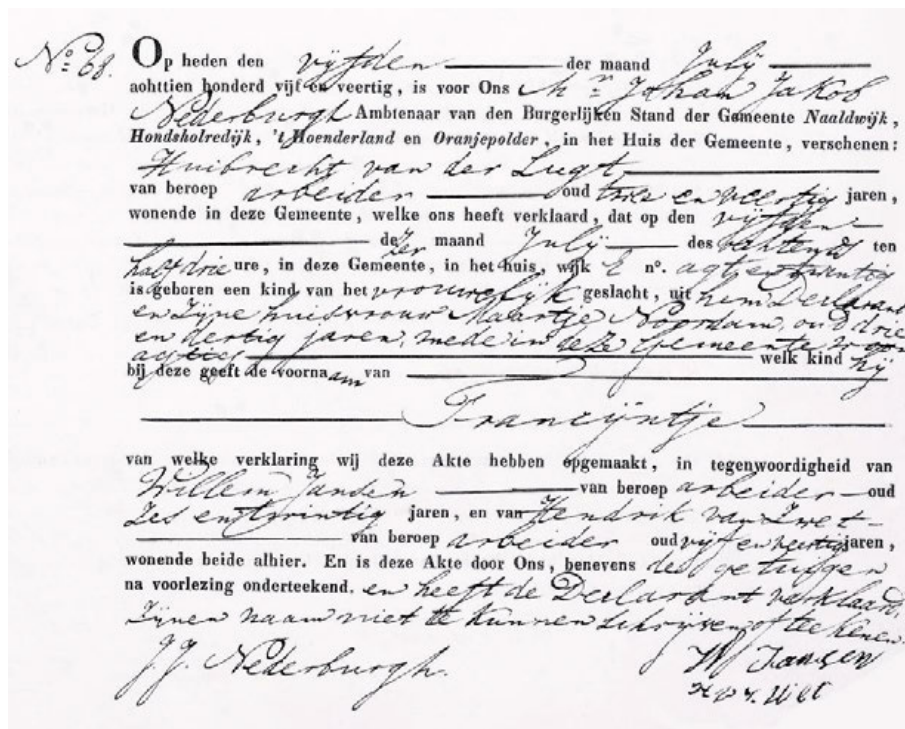 No. 68.
Op heden den vijfden der maand July
achttien honderd vijf en veertig, is voor Ons Mr. Johan Jakob
Nederburgh Ambtenaar van den Burgerlijken Stand der Gemeente Naaldwijk,
Hondsholredijk, 't Hoenderland en Oranjepolder, in het Huis der Gemeente, verschenen:
Huibrecht van der Lugt,
van beroep arbeider oud drie en veertig jaren,
wonende in deze Gemeente, welke ons heeft verklaard, dat op den vijfden
dezer maand July des ochtends ten
half drie ure, in deze Gemeente, in het huis, wijk E no. agt en twintig
is geboren een kind van het vrouwelijk geslacht, uit hem Declarant
en zijne huisvrouw Maartje Noordam, oud drie
en dertig jaren, mede in deze Gemeente
welk kind hij
bij deze geeft de voornaam van
Francijntje
van welke verklaring wij deze Akte hebben opgemaakt, in tegenwoordigheid van
Willem Jansen van beroep arbeider oud
zes en twintig jaren, en van Hendrik van Zwet
van beroep arbeider oud vijf en veertig jaren,
wonende beide alhier. En is deze Akte door Ons, benevens de getuigen
na voorlezing onderteekend. en heeft de Declarant verklaard,
zijnen naam niet te kunnen schrijven of teekenen.
J. J. Nederburgh. W Jansen